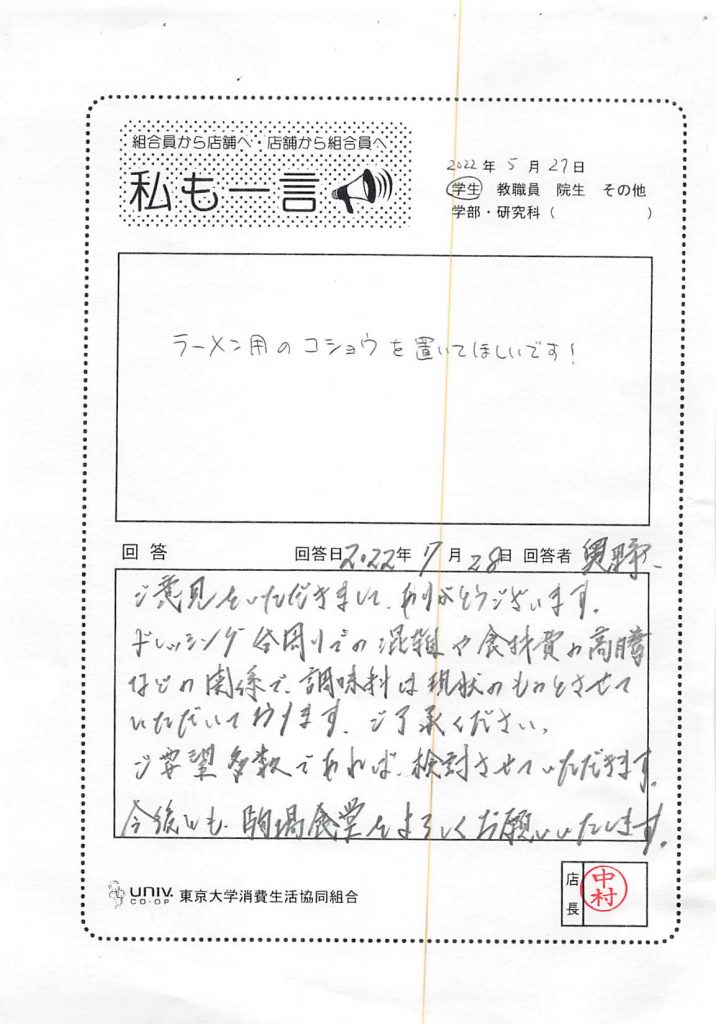 組合員から店舗へ・店舗から組合員へ
私も一言
2022年5月27日
学生 教職員 院生 その他
学部・研究科( )
ラーメン用のコショウを置いてほしいです!
回答 回答日2022年7月28日 回答者
ご意見をいただきまして、ありがとうございます。
ドレッシング台周りでの混雑や食材費の高騰
などの関係で、調味料は現状のものとさせて
いただいております。ご了承ください。
ご要望多数であれば、検討させていただきます。
今後とも、駒場食堂をよろしくお願いいたします。
UNIV. CO-OP 東京大学消費生活協同組合
店長 中村